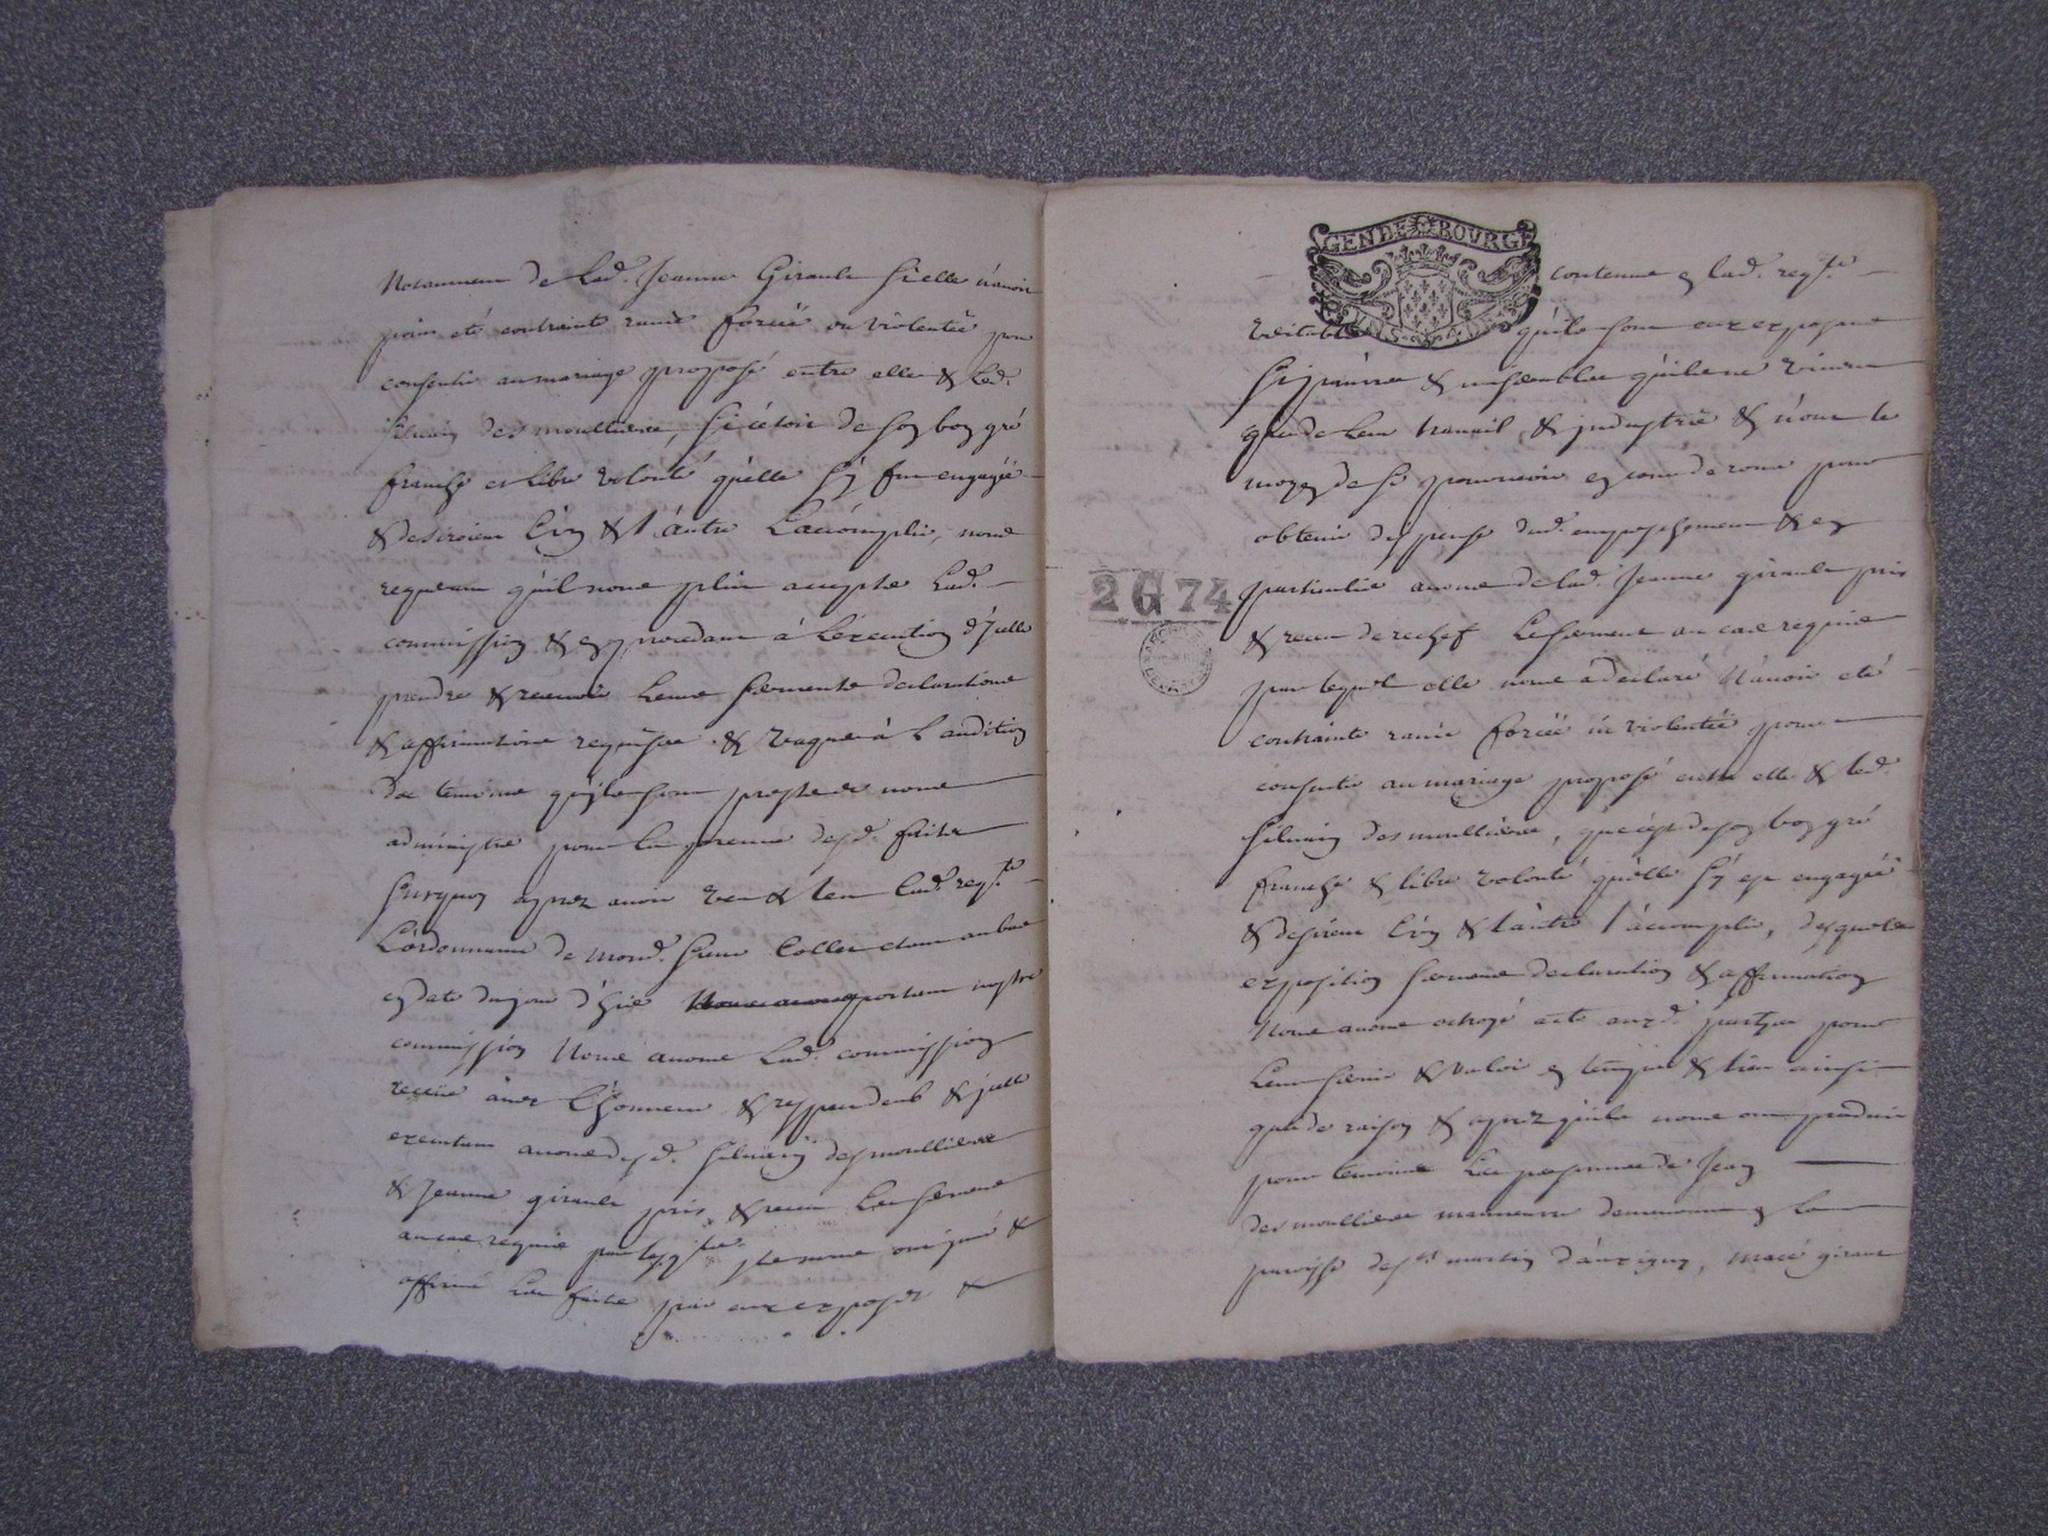 Notamment de Lad. Jeanne Girault Si elle n'auoit
point eté contrainte rauie forcée ou violentée pour
consentir au mariage proposé entre elle & led.
Siluain desmoullieres, Si c'étoit de son bon gré
franche et libre volonté qu'elle s'y fut engagée
& desiroient L'vn & l'autre L'accomplir, nous
requerant qu'il nous plut accepter Lad.
commission & en procedant à L'execution d'Jcelle
prendre & receuoir Leurs Serments declarations
& affirmations requises & vaquer à L'audition
des temoins qu'ils sont prests de nous
administrer pour La preuue desd. faits
Surquoy apres auoir veu & leu Lad. reqte
L'ordonnance de mond. Sieur Collet estant au bas
en date du jour d'hier portant nostre
commission Nous auons Lad. commission
receüe auec L'honneur & & jcelle
executant auons desd. Siluain desmoullieres
& Jeanne girault pris & receu Le Serment
au cas requis par lequel ont juré &
affirmé Les faits par eux exposés &
GEN DE BOVRGE
contenus en lad. reqte
veritables qu'ils sont aux exposent
Si pauures & miserables qu'ils ne viuent
que de Leur trauail & industrie & n'ont le
moyen de se pouruoir en cour de rome pour
obtenir dispense dud. empeschement & en
2 G 74
particulier auons de lad. Jeanne girault pris
& receu derechef Le Serment au cas requis
par lequel elle nous a declaré N'auoir eté
contrainte rauie forcée ni violentée pour
consentir au mariage proposé entre elle & led.
Siluain desmoullieres, que c'est de son bon gré
franche & libre volonté qu'elle s'y est engagée
& desirent L'vn & l'autre l'accomplir, desquelles
exposition Serment declaration & affirmation
Nous auons octroyé acte auxd. parties pour
Leur Seruir & valoir en temps & lieu ainsi
que de raison & apres qu'ils nous ont produit
pour temoins Les personnes de Jean
desmoullieres manoeuure demeurant en La
paroisse de St martin d'auxigny, Macé girault